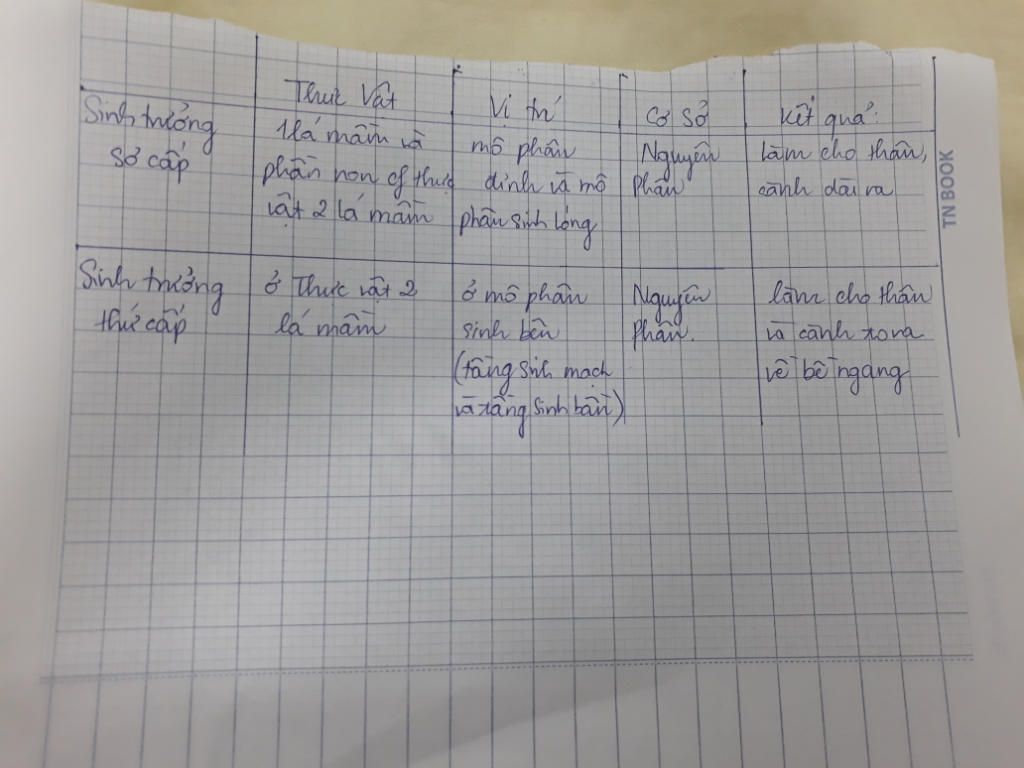 Thực Vật
Vị trí
Cơ Sở
Kết quả:
Sinh trưởng
sơ cấp
1 lá mầm và
phần non of thực
vật 2 lá mầm
mô phân
đỉnh và mô
phân sinh lóng
Nguyên
phân
làm cho thân,
cành dài ra
Sinh trưởng
thứ cấp
ở Thực vật 2
lá mầm
ở mô phân
sinh bên
(tầng sinh mạch
và tầng sinh bần)
Nguyên
phân.
làm cho thân
và cành to ra
về bề ngang
TN BOOK